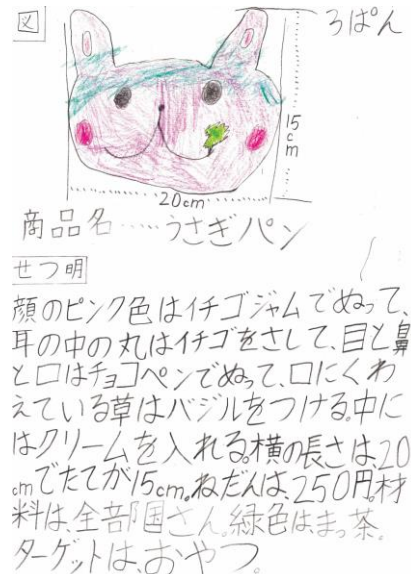 図
ろぱん
15cm
20cm
商品名……うさぎパン
せつ明
顔のピンク色はイチゴジャムでぬって、
耳の中の丸はイチゴをさして、目と鼻
と口はチョコペンでぬって、口にくわ
えている草はバジルをつける。中に
はクリームを入れる。横の長さは、20
cmでたてが15cm。ねだんは、250円。材
料は、全部国さん。緑色は、まっ茶。
ターゲットは、おやつ。